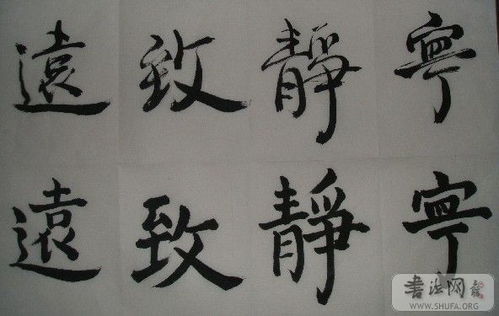 寧靜致遠
寧靜致遠
書法网
WWW.SHUFA.ORG